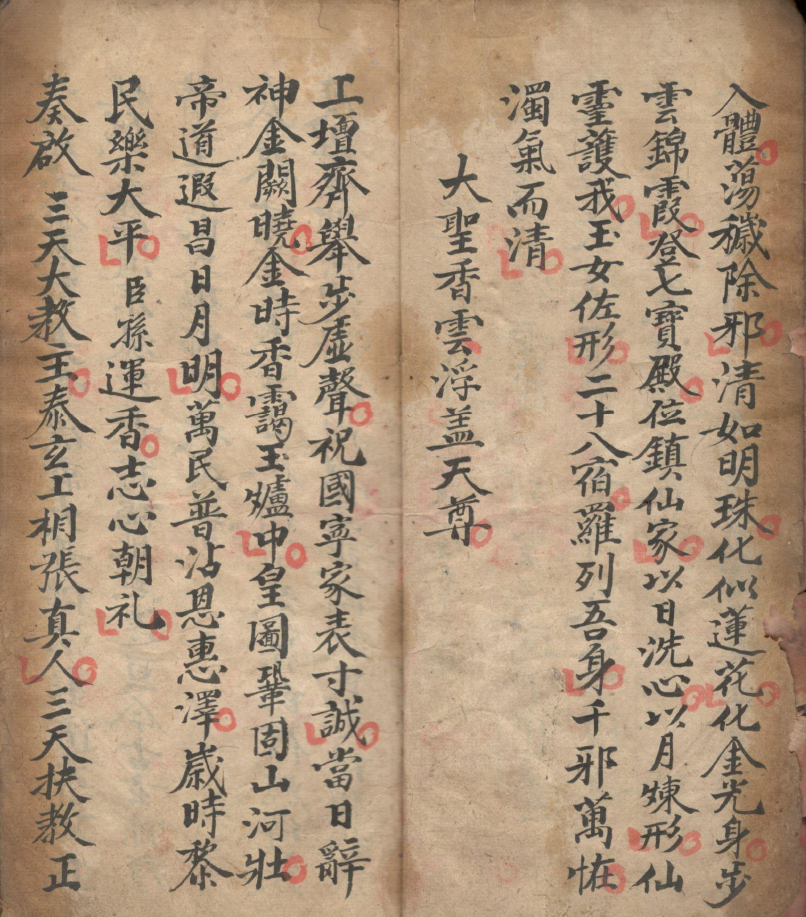 入體蕩穢除邪清如明珠化似蓮花化金光身步
雲錦霞登七寶殿位鎮仙家以日洗心以月煉形仙
靈護我玉女佐形二十八宿羅列吾身千邪萬恠
濁氣而清
大聖香雲浮盖天尊
工壇齊舉步虛聲祝國寧家表寸誠當日辭
神金闕曉金時香靄玉爐中皇圖鞏固山河壯
帝道遐昌日月明萬民普沾恩惠澤歲時黎
民樂大平臣孫運香志心朝礼
奏啟三天大教主泰玄工相張真人三天扶教正